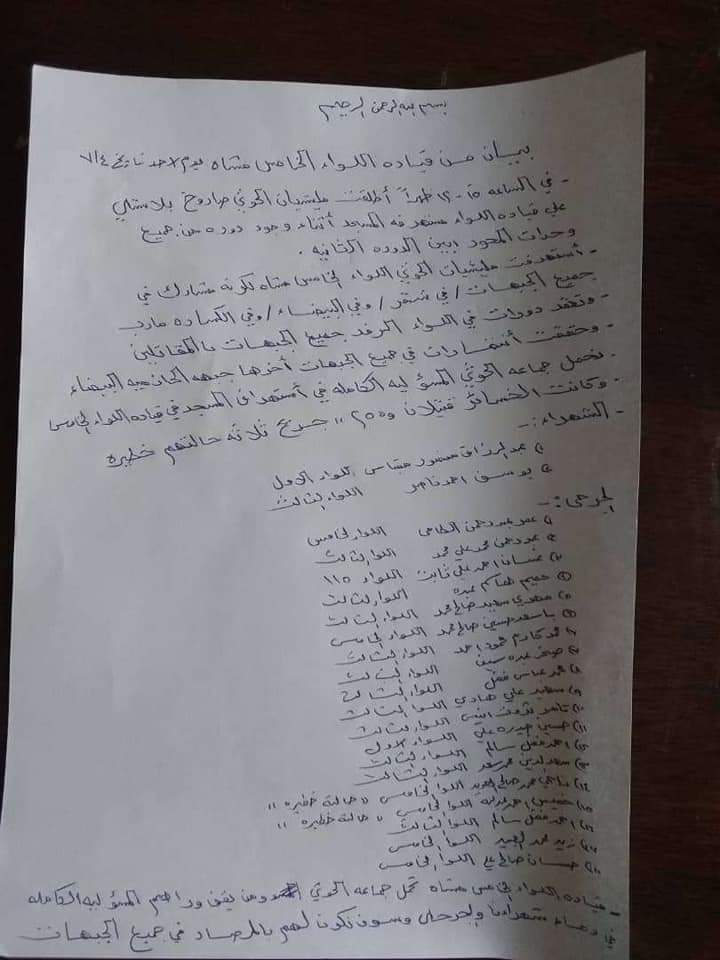 بسم الله الرحمن الرحيم
بيان من قياده اللواء الخامس مشاه يوم الاحد تاريخ ٧/٤
- في الساعه ١٥-١٢ ظهراً أطلقت مليشيات الحوثي صاروخ بلاستي
على قياده اللواء مستهدفه المسجد أثناء وجود دوره من جميع
وحدات المحور ابين الدوره الثانيه .
- أستهدفت مليشيات الحوثي اللواء الخامس مشاه لكونه مشارك في
جميع الجبهات / في شقره / وفي البيضاء / وفي الكساره مارب
- وتعقد دورات في اللواء لرفد جميع الجبهات بالمقاتلين
- وحققت أنتصارات في جميع الجبهات أخرها جبهه الحازميه البيضاء
- نحمل جماعه الحوثي المسؤليه الكامله في أستهداف المسجد في قياده اللواء الخامس
- وكانت الخسائر قتيلان و جريح ثلاثه حالتهم خطيره
- الشهداء :-
١ عبدالرزاق منصور اللواء الاول
٢ يوسف احمد ناصر اللواء الثالث
الجرحى :-
١ عمر عبدرحمن اللواء الخامس
٢ عبدرحمن محمد علي محمد اللواء الثالث
٣ غسان احمد علي ثابت اللواء ١١٥
٤ عبده اللواء الثالث
٥ مهدي سعيد صالح محمد اللواء الثالث
٦ حسين صالح محمد اللواء الخامس
٧ محمد احمد اللواء الثالث
٨ عبده سيف اللواء الثالث
محمد عباس فضل اللواء الثالث
٩ سعيد علي هادي اللواء الثالث
١٠ اللواء الثالث
١١ حسين حيدره علي اللواء الاول
١٢ احمد فضل سالم اللواء الثالث
١٣ سعدالدين محمد اللواء الثالث
١٤ ناجي محمد صالح اللواء الخامس " حالته خطيره "
١٥ خميس احمد اللواء الخامس " حالته خطيره "
١٦ احمد فضل سالم اللواء الثالث
١٧ زيد محمد اللواء الخامس
١٨ حسان صالح علي اللواء الخامس
- قياده اللواء الخامس مشاه تحمل جماعه الحوثي ومن يقف وراهم المسؤليه الكامله
في دماء شهداءنا والجرحى وسوف نكون لهم بالمرصاد في جميع الجبهات